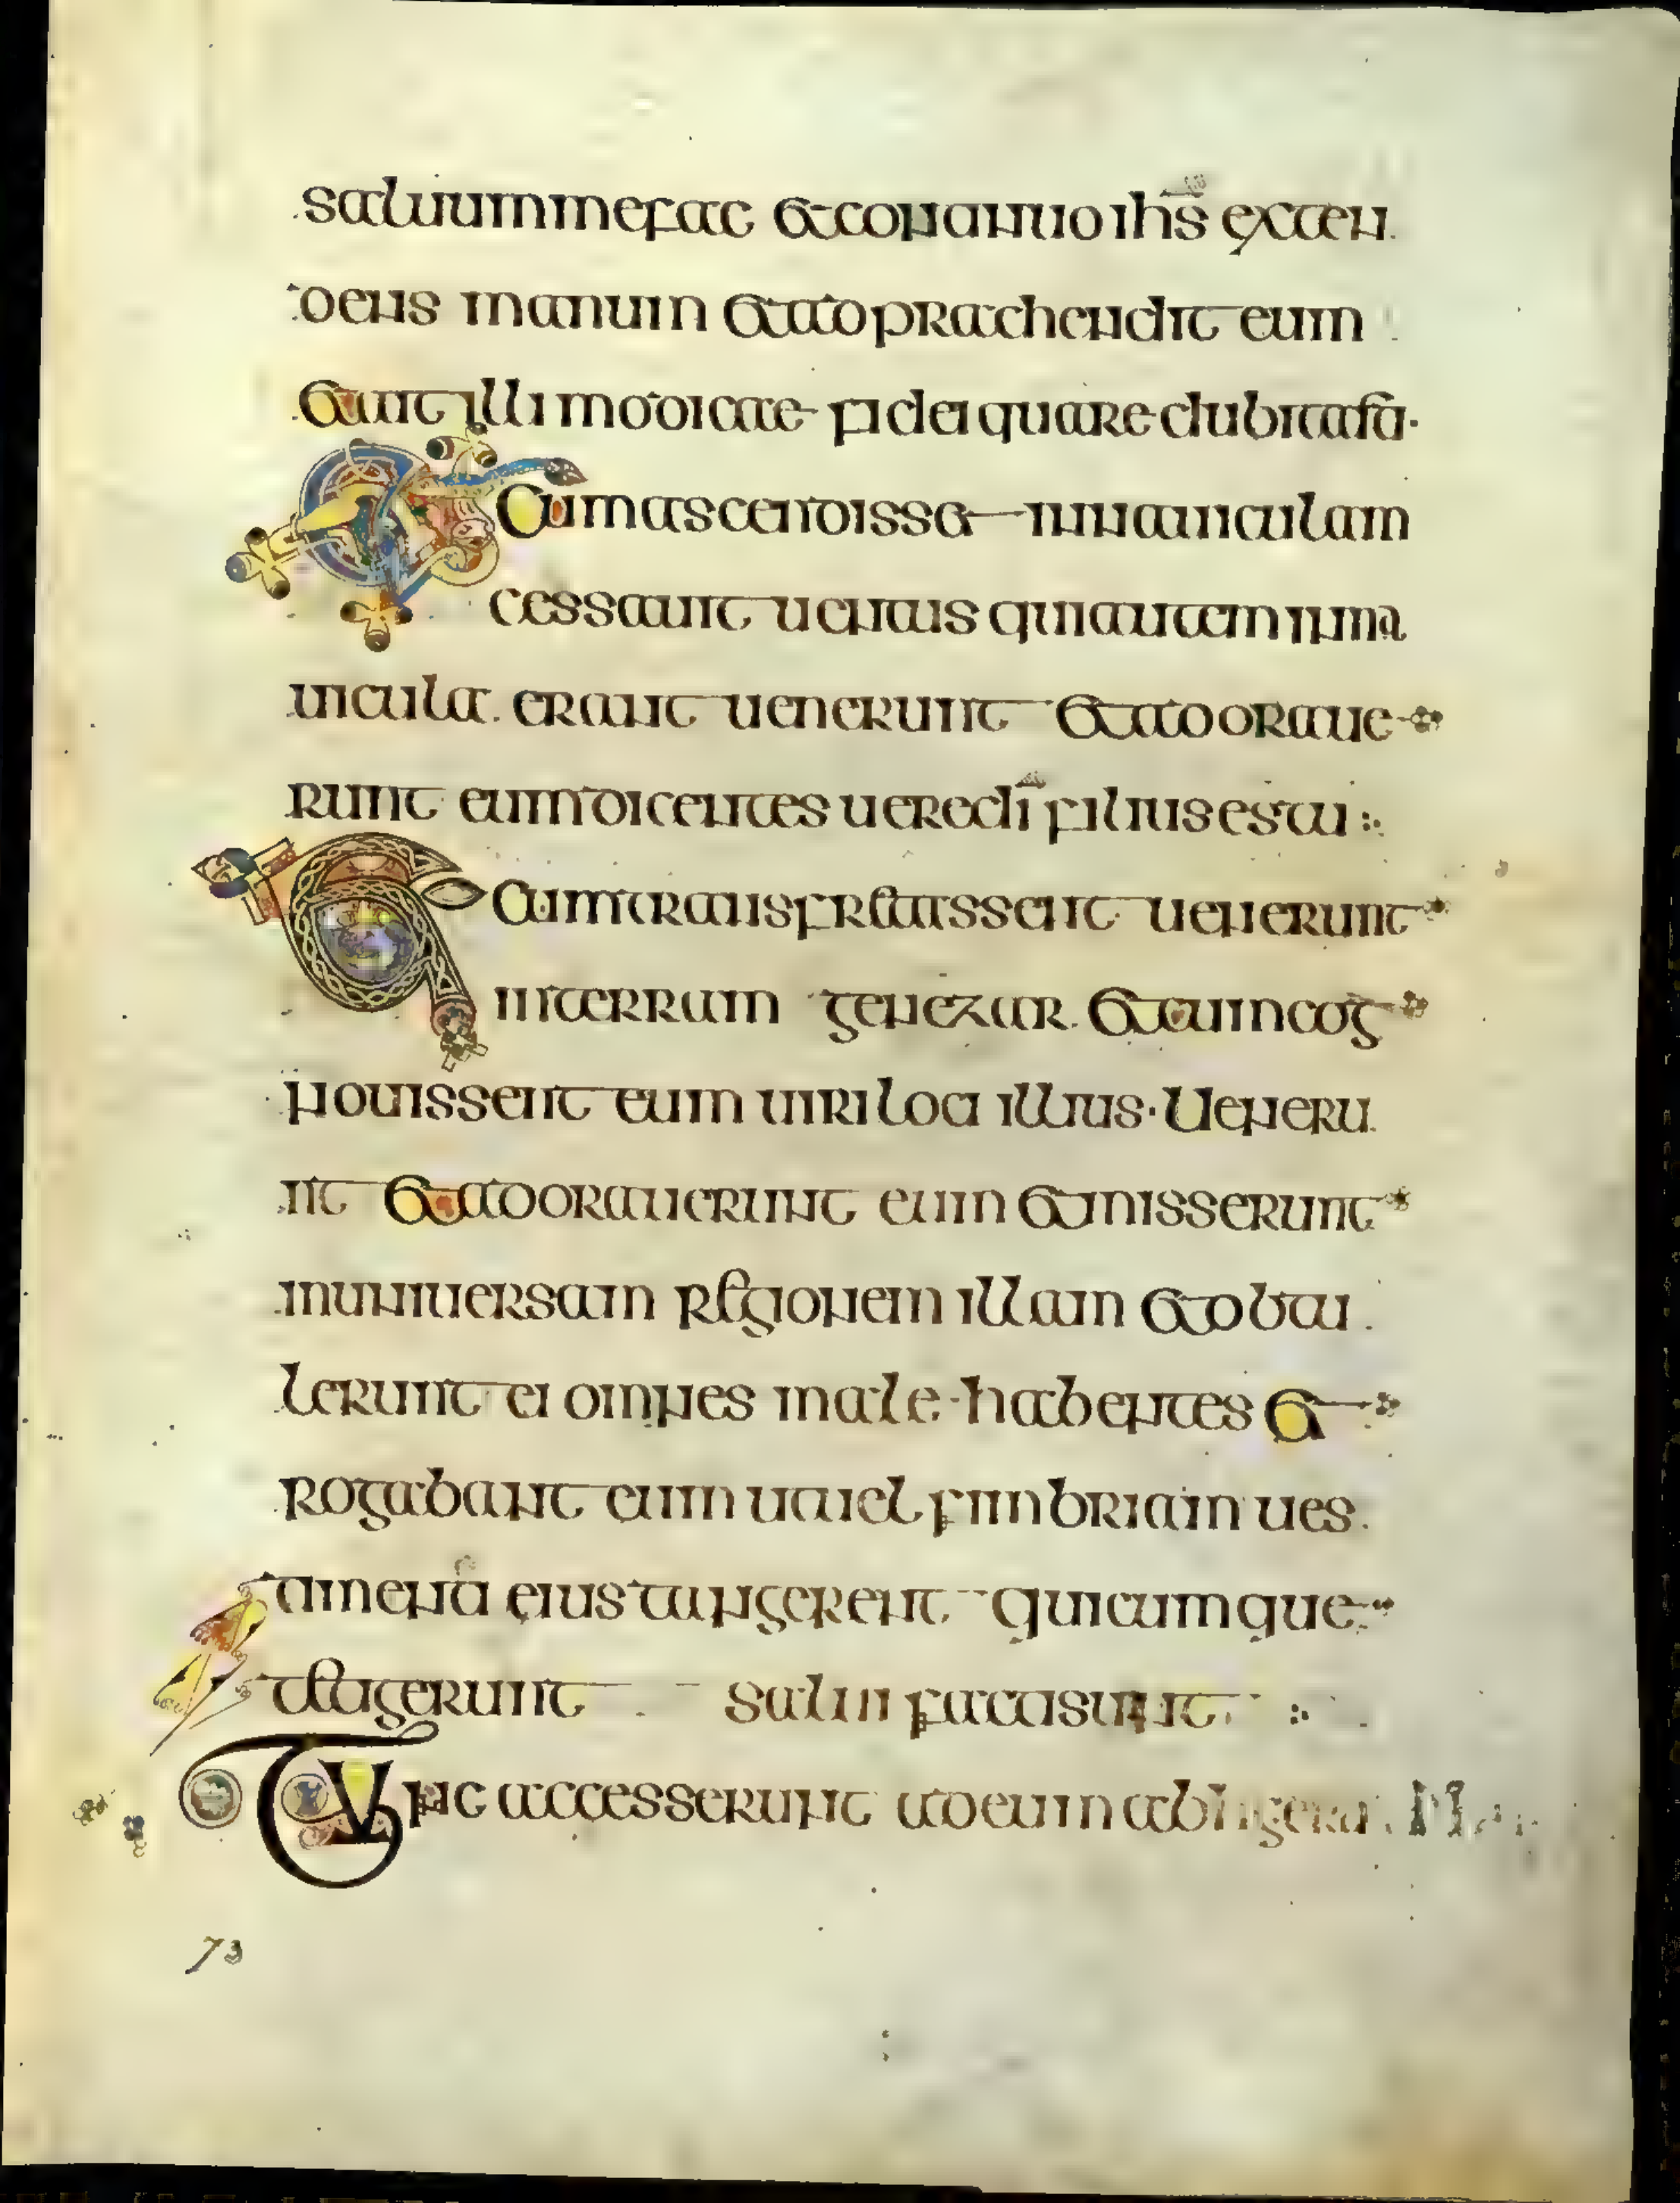 saluum me fac et continuo ihs exten
dens manum et adpraehendit eum
et ait illi modicae fidei quare dubitasti·
Et cum ascendisset in nauiculam
cessauit uentus qui autem in na
uicula erant uenerunt et adoraue
runt eum dicentes uere di filius es tu :·
Et cum transfretaissent uenerunt
in terram genezar et cum cog
nouissent eum uiri loci illius· Ueneru
nt et adorauerunt eum et misserunt
in uniuersam regionem illam et obtu
lerunt ei omnes male habentes et
rogabant eum ut uel fimbriam ues
timenti eius tangerent quicumque
tetigerunt salui facti sunt :·
Tunc accesserunt ad eum ab
73